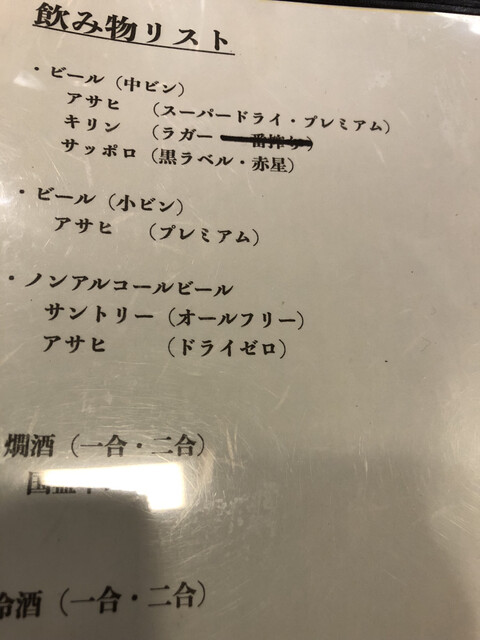 飲み物リスト
・ビール（中ビン）
アサヒ （スーパードライ・プレミアム）
キリン （ラガー 一番搾り）
サッポロ（黒ラベル・赤星）
・ビール（小ビン）
アサヒ （プレミアム）
・ノンアルコールビール
サントリー（オールフリー）
アサヒ （ドライゼロ）
燗酒（一合・二合）
冷酒（一合・二合）